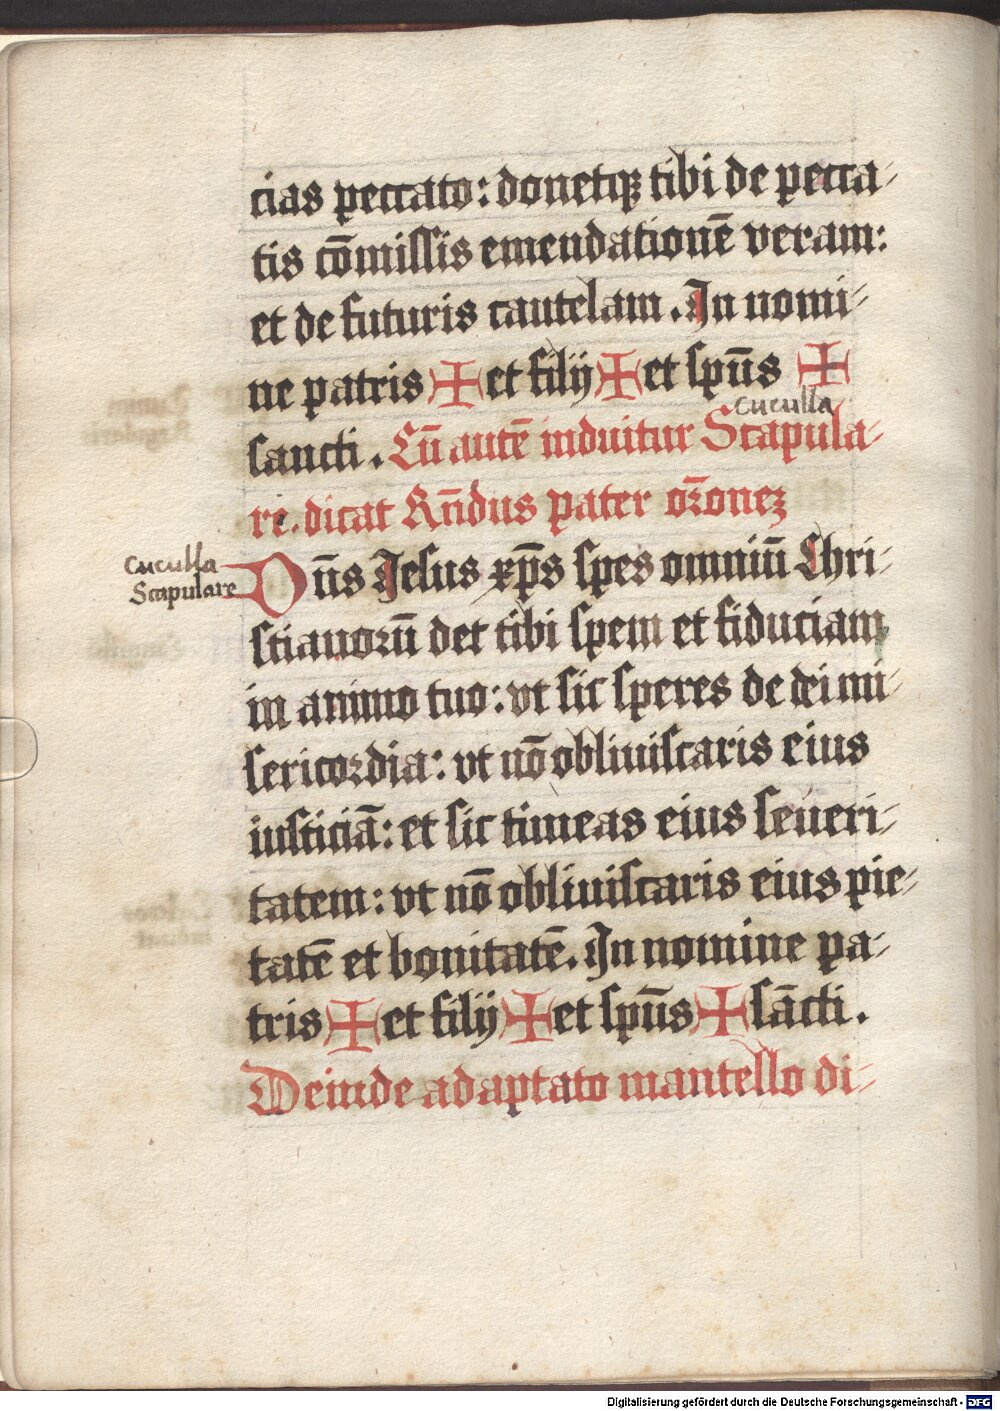 cias peccato: donetqꝫ tibi de pecca-
tis cōmissis emendationē veram:
et de futuris cautelam. In nomi-
ne patris ✠ et filij ✠ et spūs ✠
cuculla
sancti. Cū autē induitur Scapula-
re. dicat Rn̄dus pater or̄onez
cuculla
Scapulare
Dn̄s Jesus xp̄s spes omniū Chri-
stianorū det tibi spem et fiduciam
in animo tuo: vt sic speres de dei mi-
sericordia: vt nō obliuiscaris eius
iusticiā: et sic timeas eius seueri-
tatem: vt nō obliuiscaris eius pie-
tatē et bonitatē. In nomine pa-
tris ✠ et filij ✠ et spūs ✠ sācti.
Deinde adaptato mantello di-
Digitalisierung gefördert durch die Deutsche Forschungsgemeinschaft - DFG